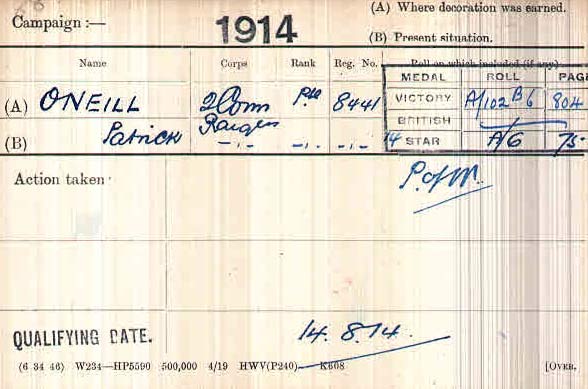 (A) Where decoration was earned.
Campaign :— 1914
(B) Present situation.
Name Corps Rank Reg. No. Roll on which included (if any)
MEDAL ROLL PAGE
(A) ONEILL 2 Conn Pte 8441 VICTORY A/102 B6 804
Rangers BRITISH
(B) Patrick -,- -,- -,- 14 STAR A/6 75
Action taken P. of W.
QUALIFYING DATE. 14.8.14.
(6 34 46) W234—HP5590 500,000 4/19 HWV(P240) K608 [OVER.